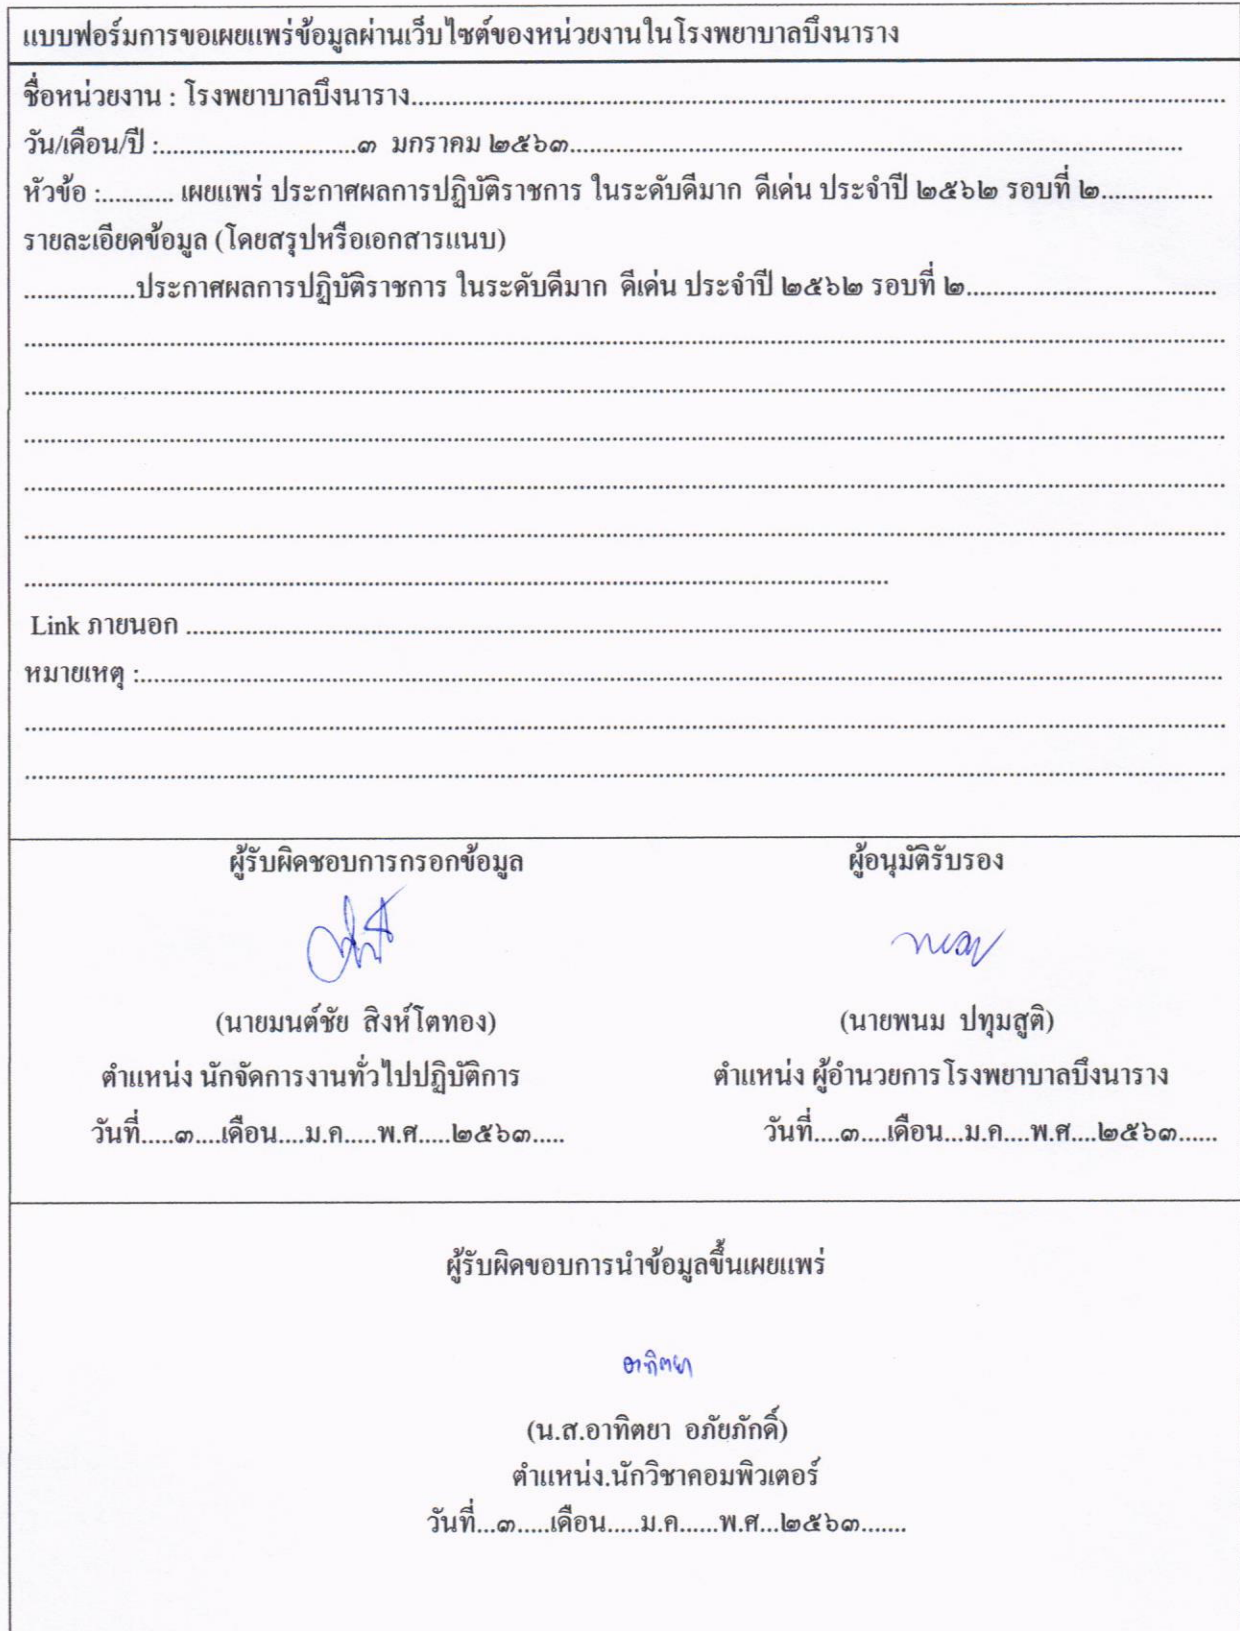 แบบฟอร์มการขอเผยแพร่ข้อมูลผ่านเว็บไซต์ของหน่วยงานในโรงพยาบาลบึงนาราง
ชื่อหน่วยงาน : โรงพยาบาลบึงนาราง....................
วัน/เดือน/ปี :....................๓ มกราคม ๒๕๖๓....................
หัวข้อ :........... เผยแพร่ ประกาศผลการปฏิบัติราชการ ในระดับดีมาก ดีเด่น ประจำปี ๒๕๖๒ รอบที่ ๒.................
รายละเอียดข้อมูล (โดยสรุปหรือเอกสารแนบ)
.................ประกาศผลการปฏิบัติราชการ ในระดับดีมาก ดีเด่น ประจำปี ๒๕๖๒ รอบที่ ๒....................
Link ภายนอก ....................
หมายเหตุ :....................
ผู้รับผิดชอบการกรอกข้อมูล ผู้อนุมัติรับรอง
พนม
(นายมนต์ชัย สิงห์โตทอง) (นายพนม ปทุมสูติ)
ตำแหน่ง นักจัดการงานทั่วไปปฏิบัติการ ตำแหน่ง ผู้อำนวยการโรงพยาบาลบึงนาราง
วันที่.....๓....เดือน....ม.ค.....พ.ศ.....๒๕๖๓..... วันที่....๓....เดือน...ม.ค....พ.ศ....๒๕๖๓......
ผู้รับผิดขอบการนำข้อมูลขึ้นเผยแพร่
อาทิตยา
(น.ส.อาทิตยา อภัยภักดิ์)
ตำแหน่ง.นักวิชาคอมพิวเตอร์
วันที่...๓.....เดือน.....ม.ค......พ.ศ...๒๕๖๓.......